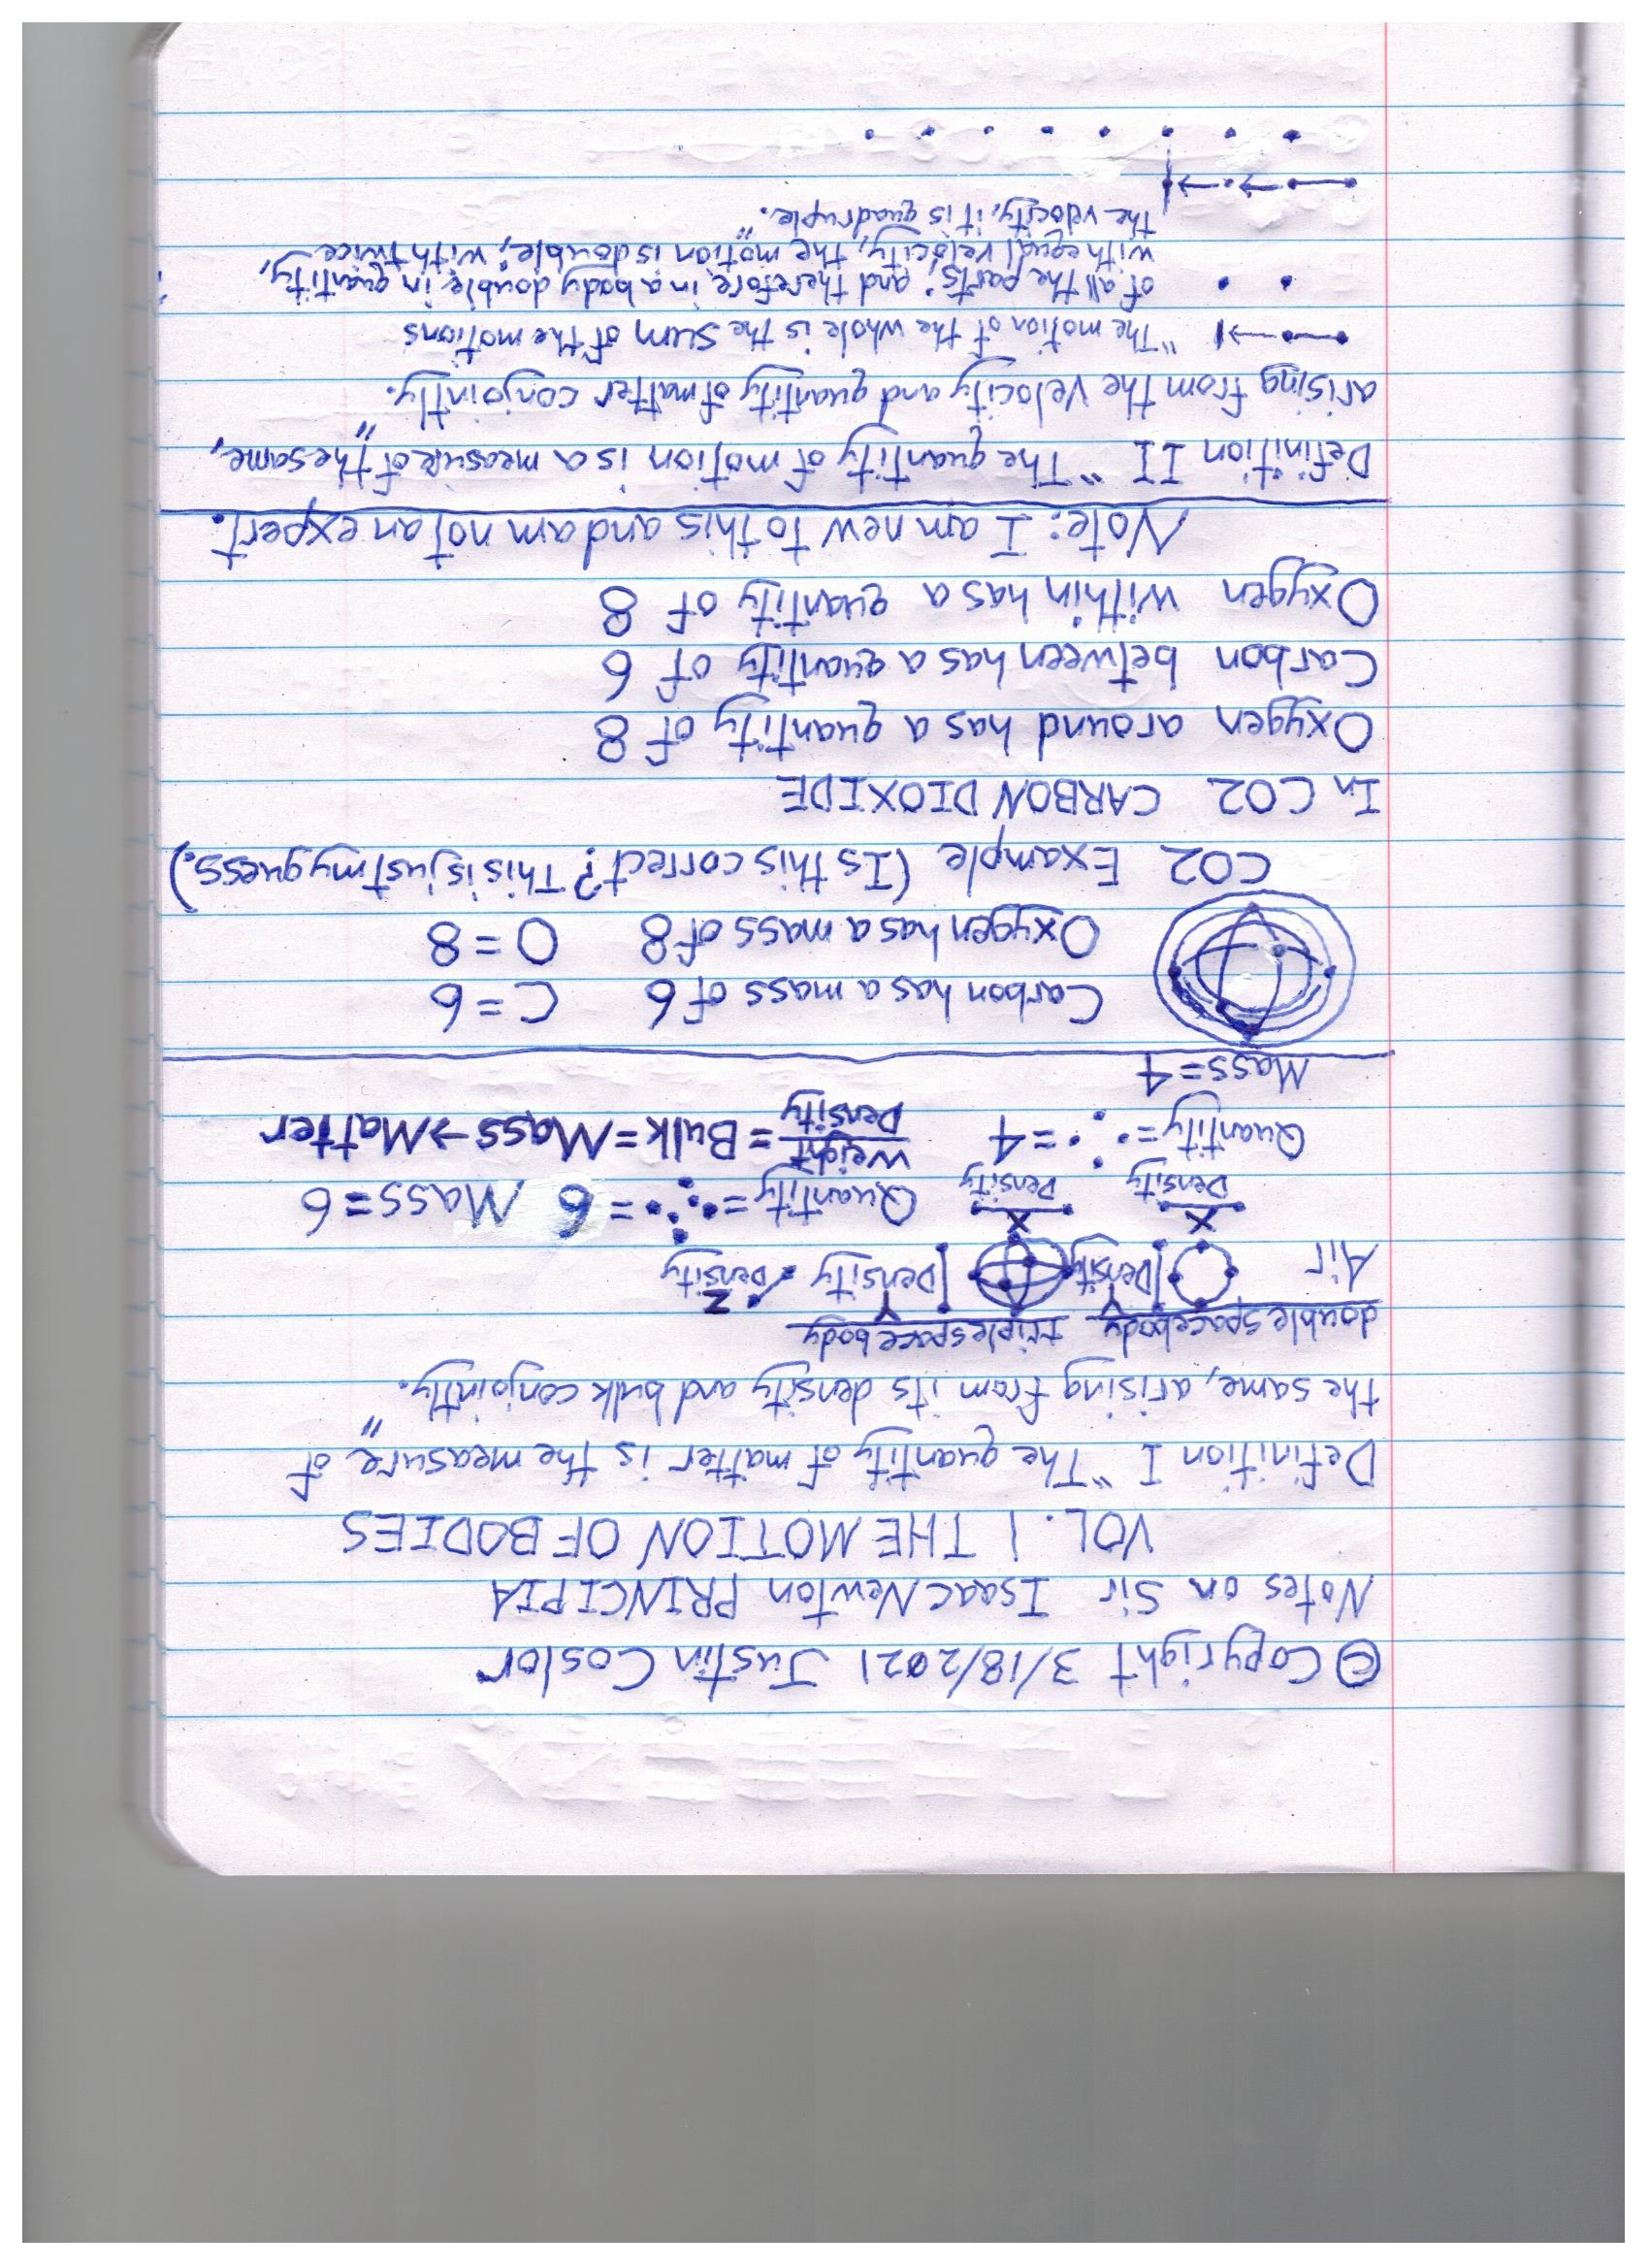 © Copyright 3/18/2021 Justin Coslor
Notes on Sir Isaac Newton PRINCIPIA
VOL. 1 THE MOTION OF BODIES
Definition I "The quantity of matter is the measure of
the same, arising from its density and bulk conjointly."
double space body triple space body
Air Y | Density Y | Density Z Density
X Density X Density Quantity = = 6 Mass = 6
Quantity = = 4 Weight / Density = Bulk = Mass → Matter
Mass = 4
Carbon has a mass of 6 C = 6
Oxygen has a mass of 8 O = 8
CO2 Example (Is this correct? This is just my guess.)
In CO2 CARBON DIOXIDE
Oxygen around has a quantity of 8
Carbon between has a quantity of 6
Oxygen within has a quantity of 8
Note: I am new to this and am not an expert.
Definition II "The quantity of motion is a measure of the same,
arising from the velocity and quantity of matter conjointly."
"The motion of the whole is the sum of the motions
of all the parts; and therefore in a body double in quantity,
with equal velocity, the motion is double; with twice
the velocity, it is quadruple."